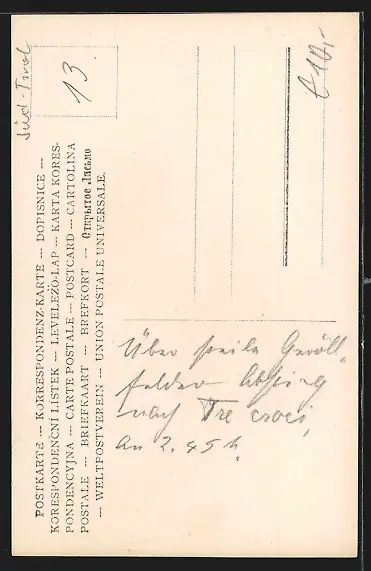 Süd-Tirol
13
€10,-
POSTKARTE --- KORRESPONDENZ-KARTE --- DOPISNICE ---
KORESPONDENČNÍ LÍSTEK --- LEVELEZŐ-LAP --- KARTA KORES-
PONDENCYJNA --- CARTE POSTALE --- POSTCARD --- CARTOLINA
POSTALE --- BRIEFKAART --- BRIEFKORT --- Открытое Письмо
--- WELTPOSTVEREIN --- UNION POSTALE UNIVERSALE.
Über steile Geröll-
felder Abstieg
nach Tre croci,
an 2.45 h.